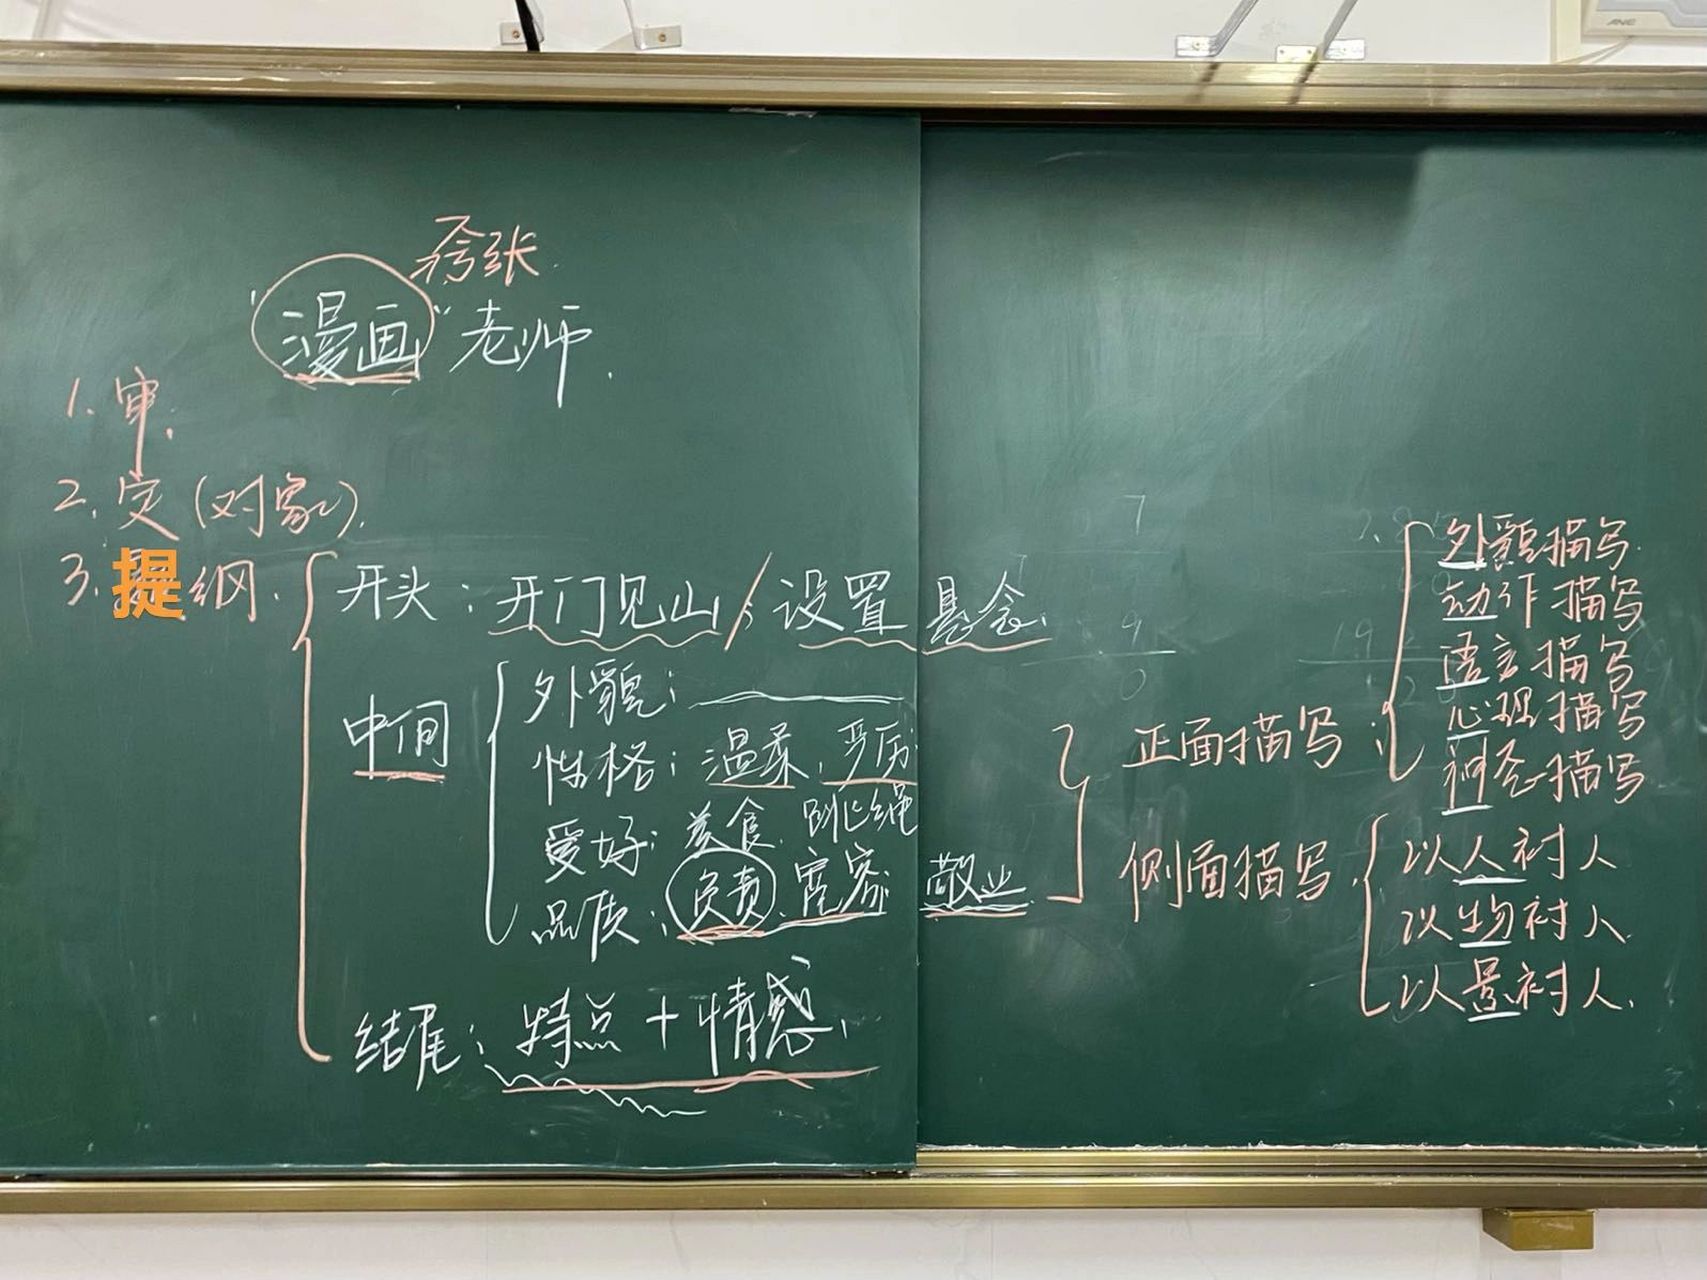 夸张
"漫画"老师.
1.审.
2.定(对象).
3.提纲.
开头:开门见山/设置悬念.
中间
外貌:
性格:温柔,严厉
爱好:美食.跳绳
品质:负责.宽容 敬业
结尾:特点+情感.
正面描写:
外貌描写.
动作描写
语言描写
心理描写
神态描写
侧面描写.
以人衬人
以物衬人.
以景衬人.
ANC